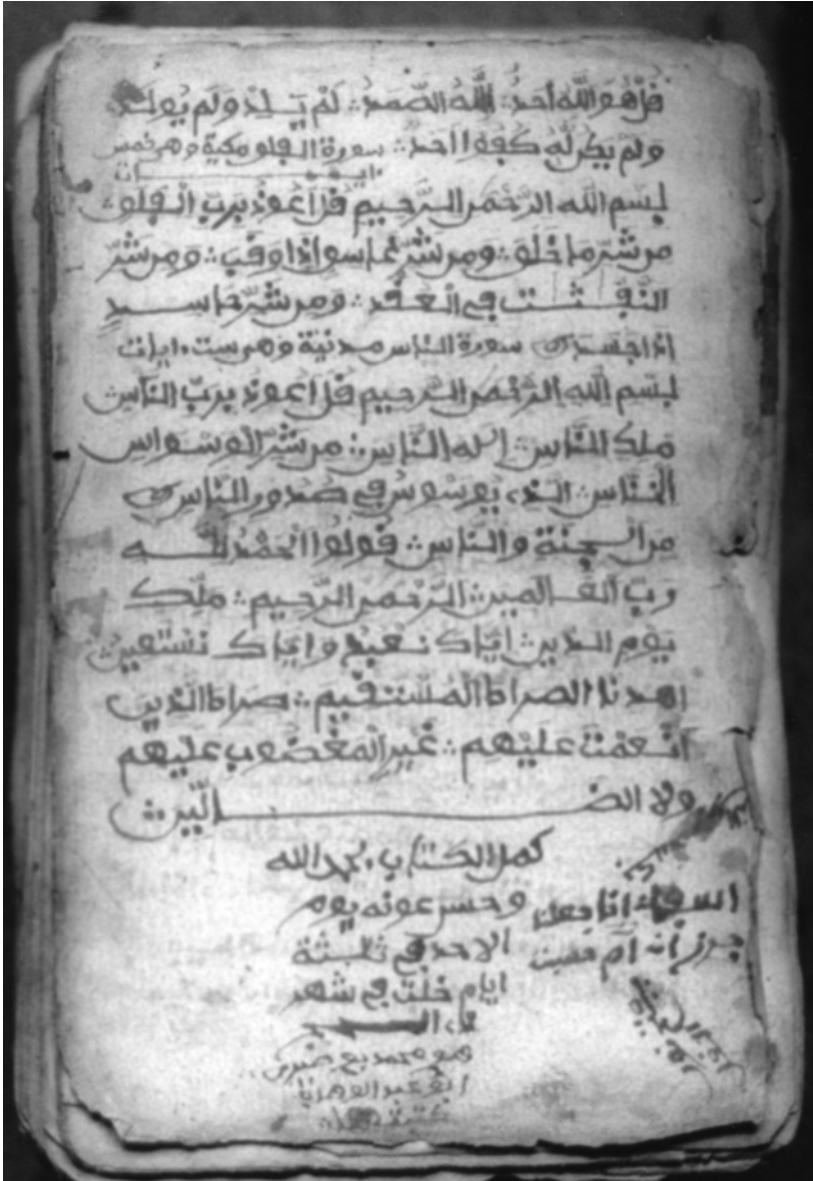 قل هو الله احد ۞ الله الصمد ۞ لم يلد ولم يولد
ولم يكن له كفؤا احد ۞ سورة الفلق مكية وهي خمس
ايات
بسم الله الرحمن الرحيم قل اعوذ برب الفلق
من شر ما خلق ۞ ومن شر غاسق اذا وقب ۞ ومن شر
النفثت في العقد ۞ ومن شر حاسد
اذا حسد سورة الناس مدنية وهي ست ايات
بسم الله الرحمن الرحيم قل اعوذ برب الناس
ملك الناس ۞ اله الناس ۞ من شر الوسواس
الخناس الذي يوسوس في صدور الناس
من الجنة والناس ۞ قولوا الحمد لله
رب العالمين ۞ الرحمن الرحيم ۞ ملك
يوم الدين ۞ اياك نعبد واياك نستعين
اهدنا الصراط المستقيم ۞ صراط الذين
انعمت عليهم ۞ غير المغضوب عليهم
ولا الضالين
كمل الكتاب بحمد الله
وحسن عونه يوم
الاحد في ثلثة
ايام خلت في شهر
هو محمد